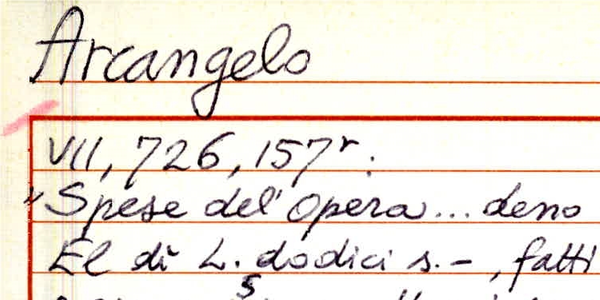 Arcangelo
VII, 726, 157r:
"Spese del' Opera... deno
El dì L. dodici s. –, fatti